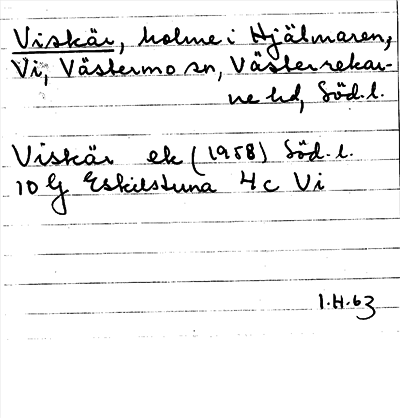 Viskär, holme i Hjälmaren,
Vi, Västermo sn, Västerrekar-
ne hd, Söd. l.
Viskär ek (1958) Söd. l.
10 G Eskilstuna 4 c Vi
1.H.63